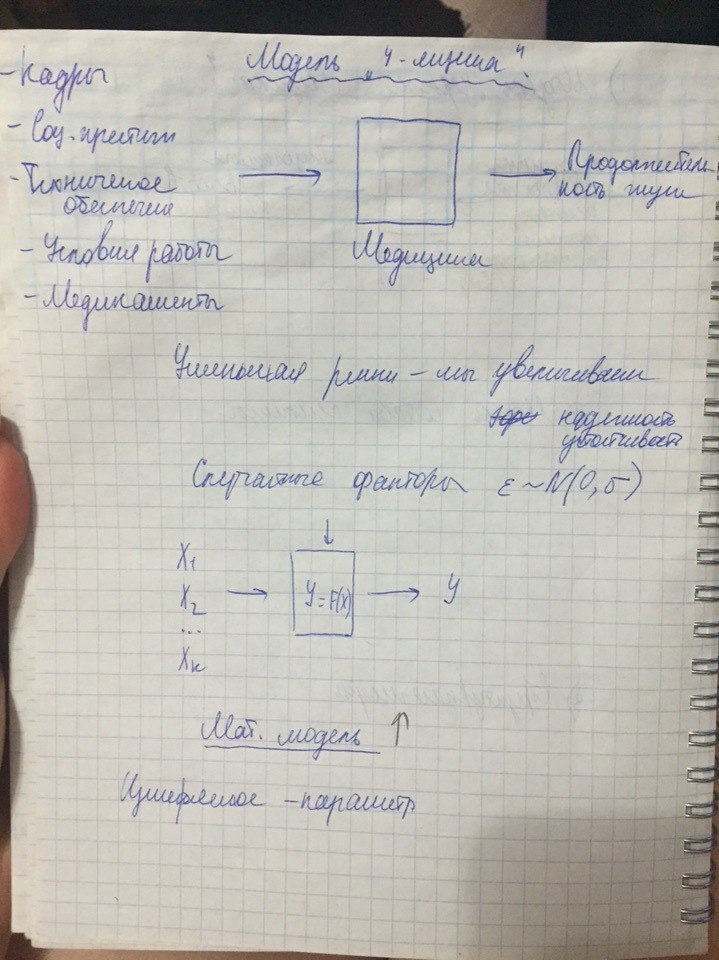 Модель "Ч-ящика"
- Кадры
- Соц. престиж
- Техническое
обеспечение
- Условия работы
- Медикаменты
Медицина
Продолжитель
ность жизни
Уменьшая риски – мы увеличиваем
надежность
устойчивость
Случайные факторы ε ~ N(0, σ)
X₁
X₂
...
Xₖ
Y = F(X)
Y
Мат. модель ↑
Измеряемое – параметр